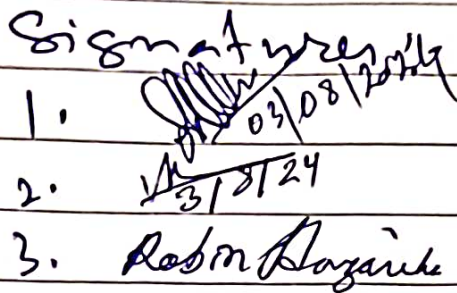 Signatures
1. 03/08/2024
2. 3/8/24
3. Robin Hazarika